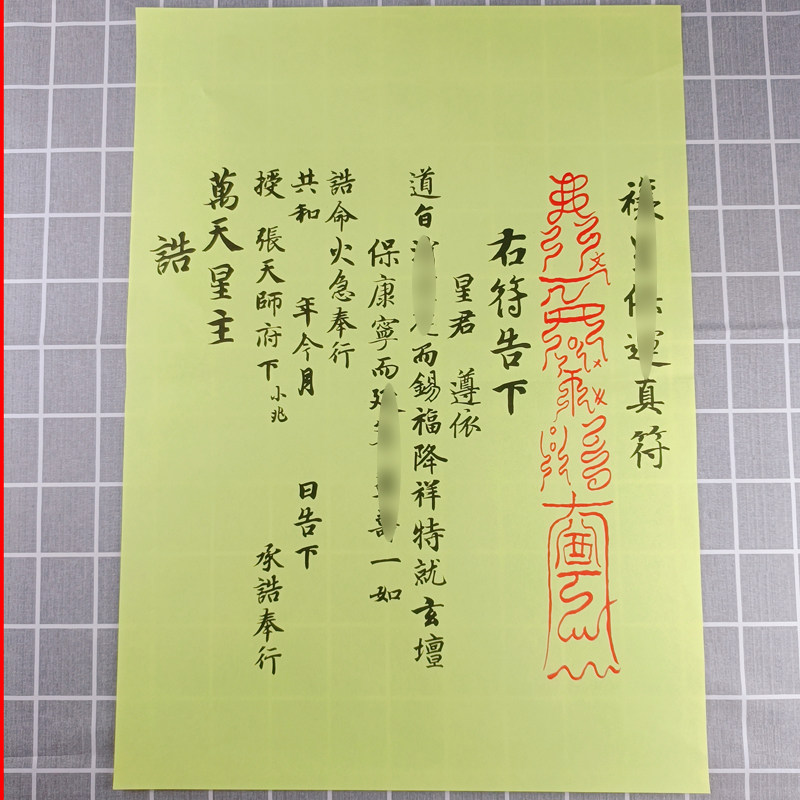 禳 真符
右符告下
星君 遵依
道旨 而錫福降祥特就玄壇
保康寧而 一如
誥命火急奉行
共和 年今月 日告下
授 張天師府下小兆 承誥奉行
萬天星主
誥